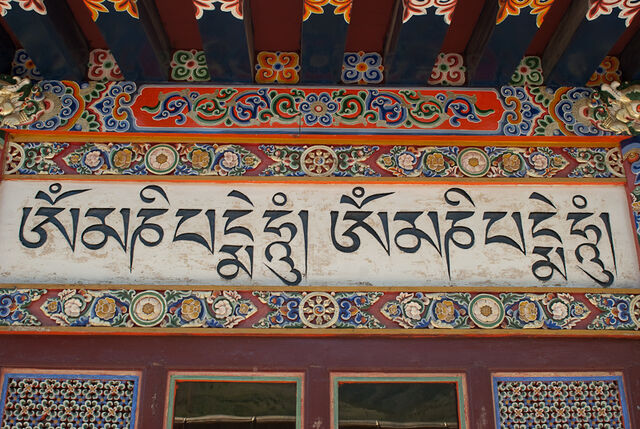 ཨོཾམཎིཔདྨེཧཱུྃ ཨོཾམཎིཔདྨེཧཱུྃ